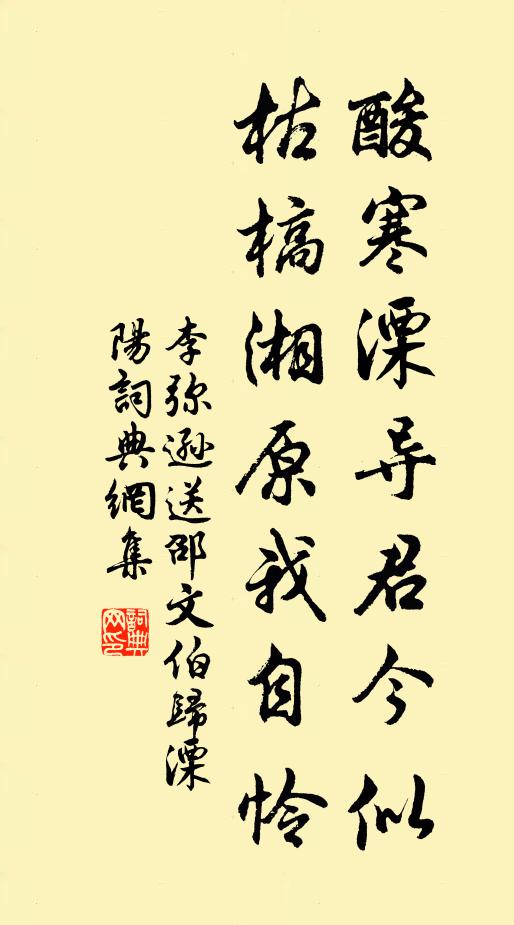 酸寒溧导君今似
枯槁湘原我自怜
李弥逊送邵文伯歸溧
陽詞典網集
詞典網印